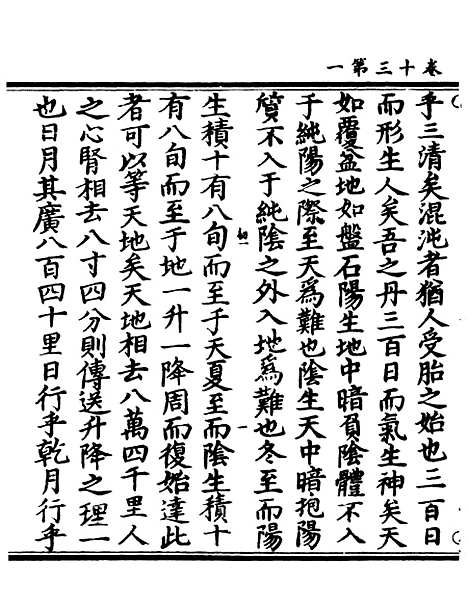 卷十三第一
乎三清矣混沌者猶人受胎之始也三百日
而形生人矣吾之丹三百日而氣生神矣天
如覆盆地如盤石陽生地中暗負陰體不入
于純陽之際至天爲難也陰生天中暗抱陽
質不入于純陰之外入地爲難也冬至而陽
生積十有八旬而至于天夏至而陰生積十
有八旬而至于地一升一降周而復始達此
者可以等天地矣天地相去八萬四千里人
之心腎相去八寸四分則傳送升降之理一
也日月其廣八百四十里日行乎乾月行乎